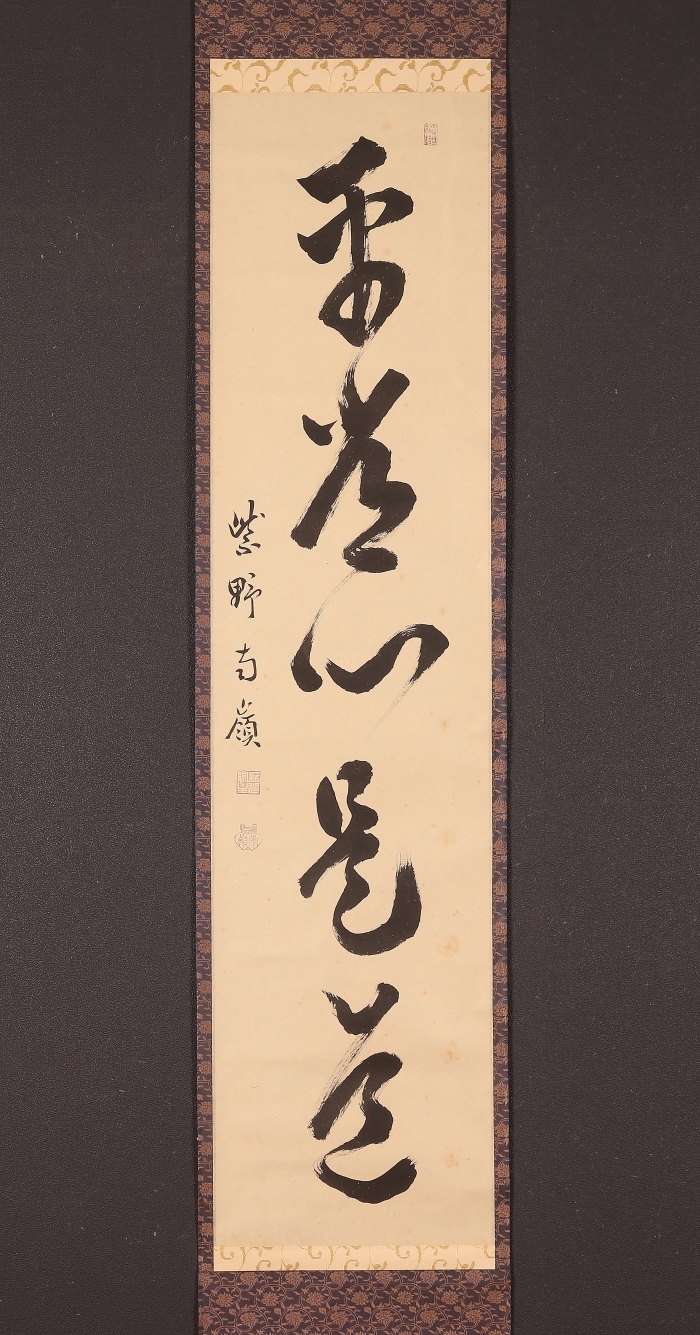 平常心是道
紫野南嶺